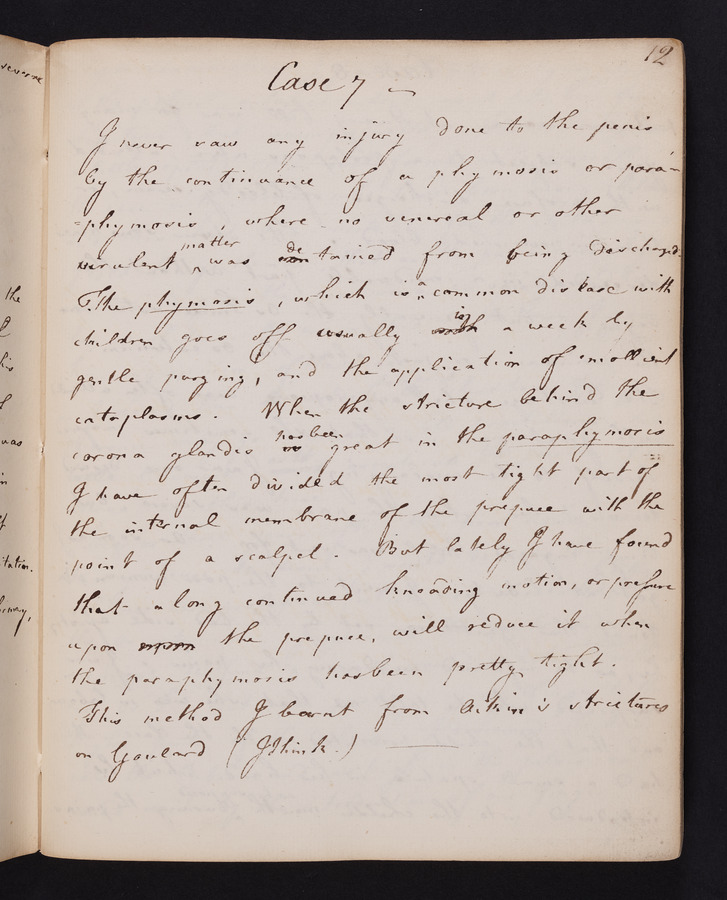 12
Case 7 —
I never saw any injury done to the penis
by the continuance of a phymosis or para-
=phymosis, where no venereal or other
virulent matter was detained from being discharged.
The phymosis, which is a common disease with
children goes off usually in a week by
gentle purging, and the application of emollient
cataplasms. When the stricture behind the
corona glandis has been great in the paraphymosis
I have often divided the most tight part of
the internal membrane of the prepuce with the
point of a scalpel. But lately I have found
that a long continued kneading motion, or pressure
upon the prepuce, will reduce it when
the paraphymosis has been pretty tight.
This method I learnt from Aitkin's strictures
on Goulard (I think.) —
severe
the
his
was
in